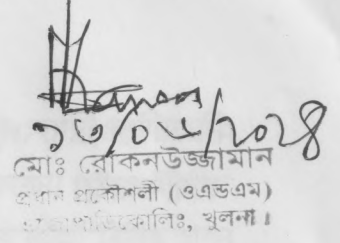 ১৬/০৬/২০২৪
মোঃ রোকনউজ্জামান
প্রধান প্রকৌশলী (ওএন্ডএম)
খুলনা।